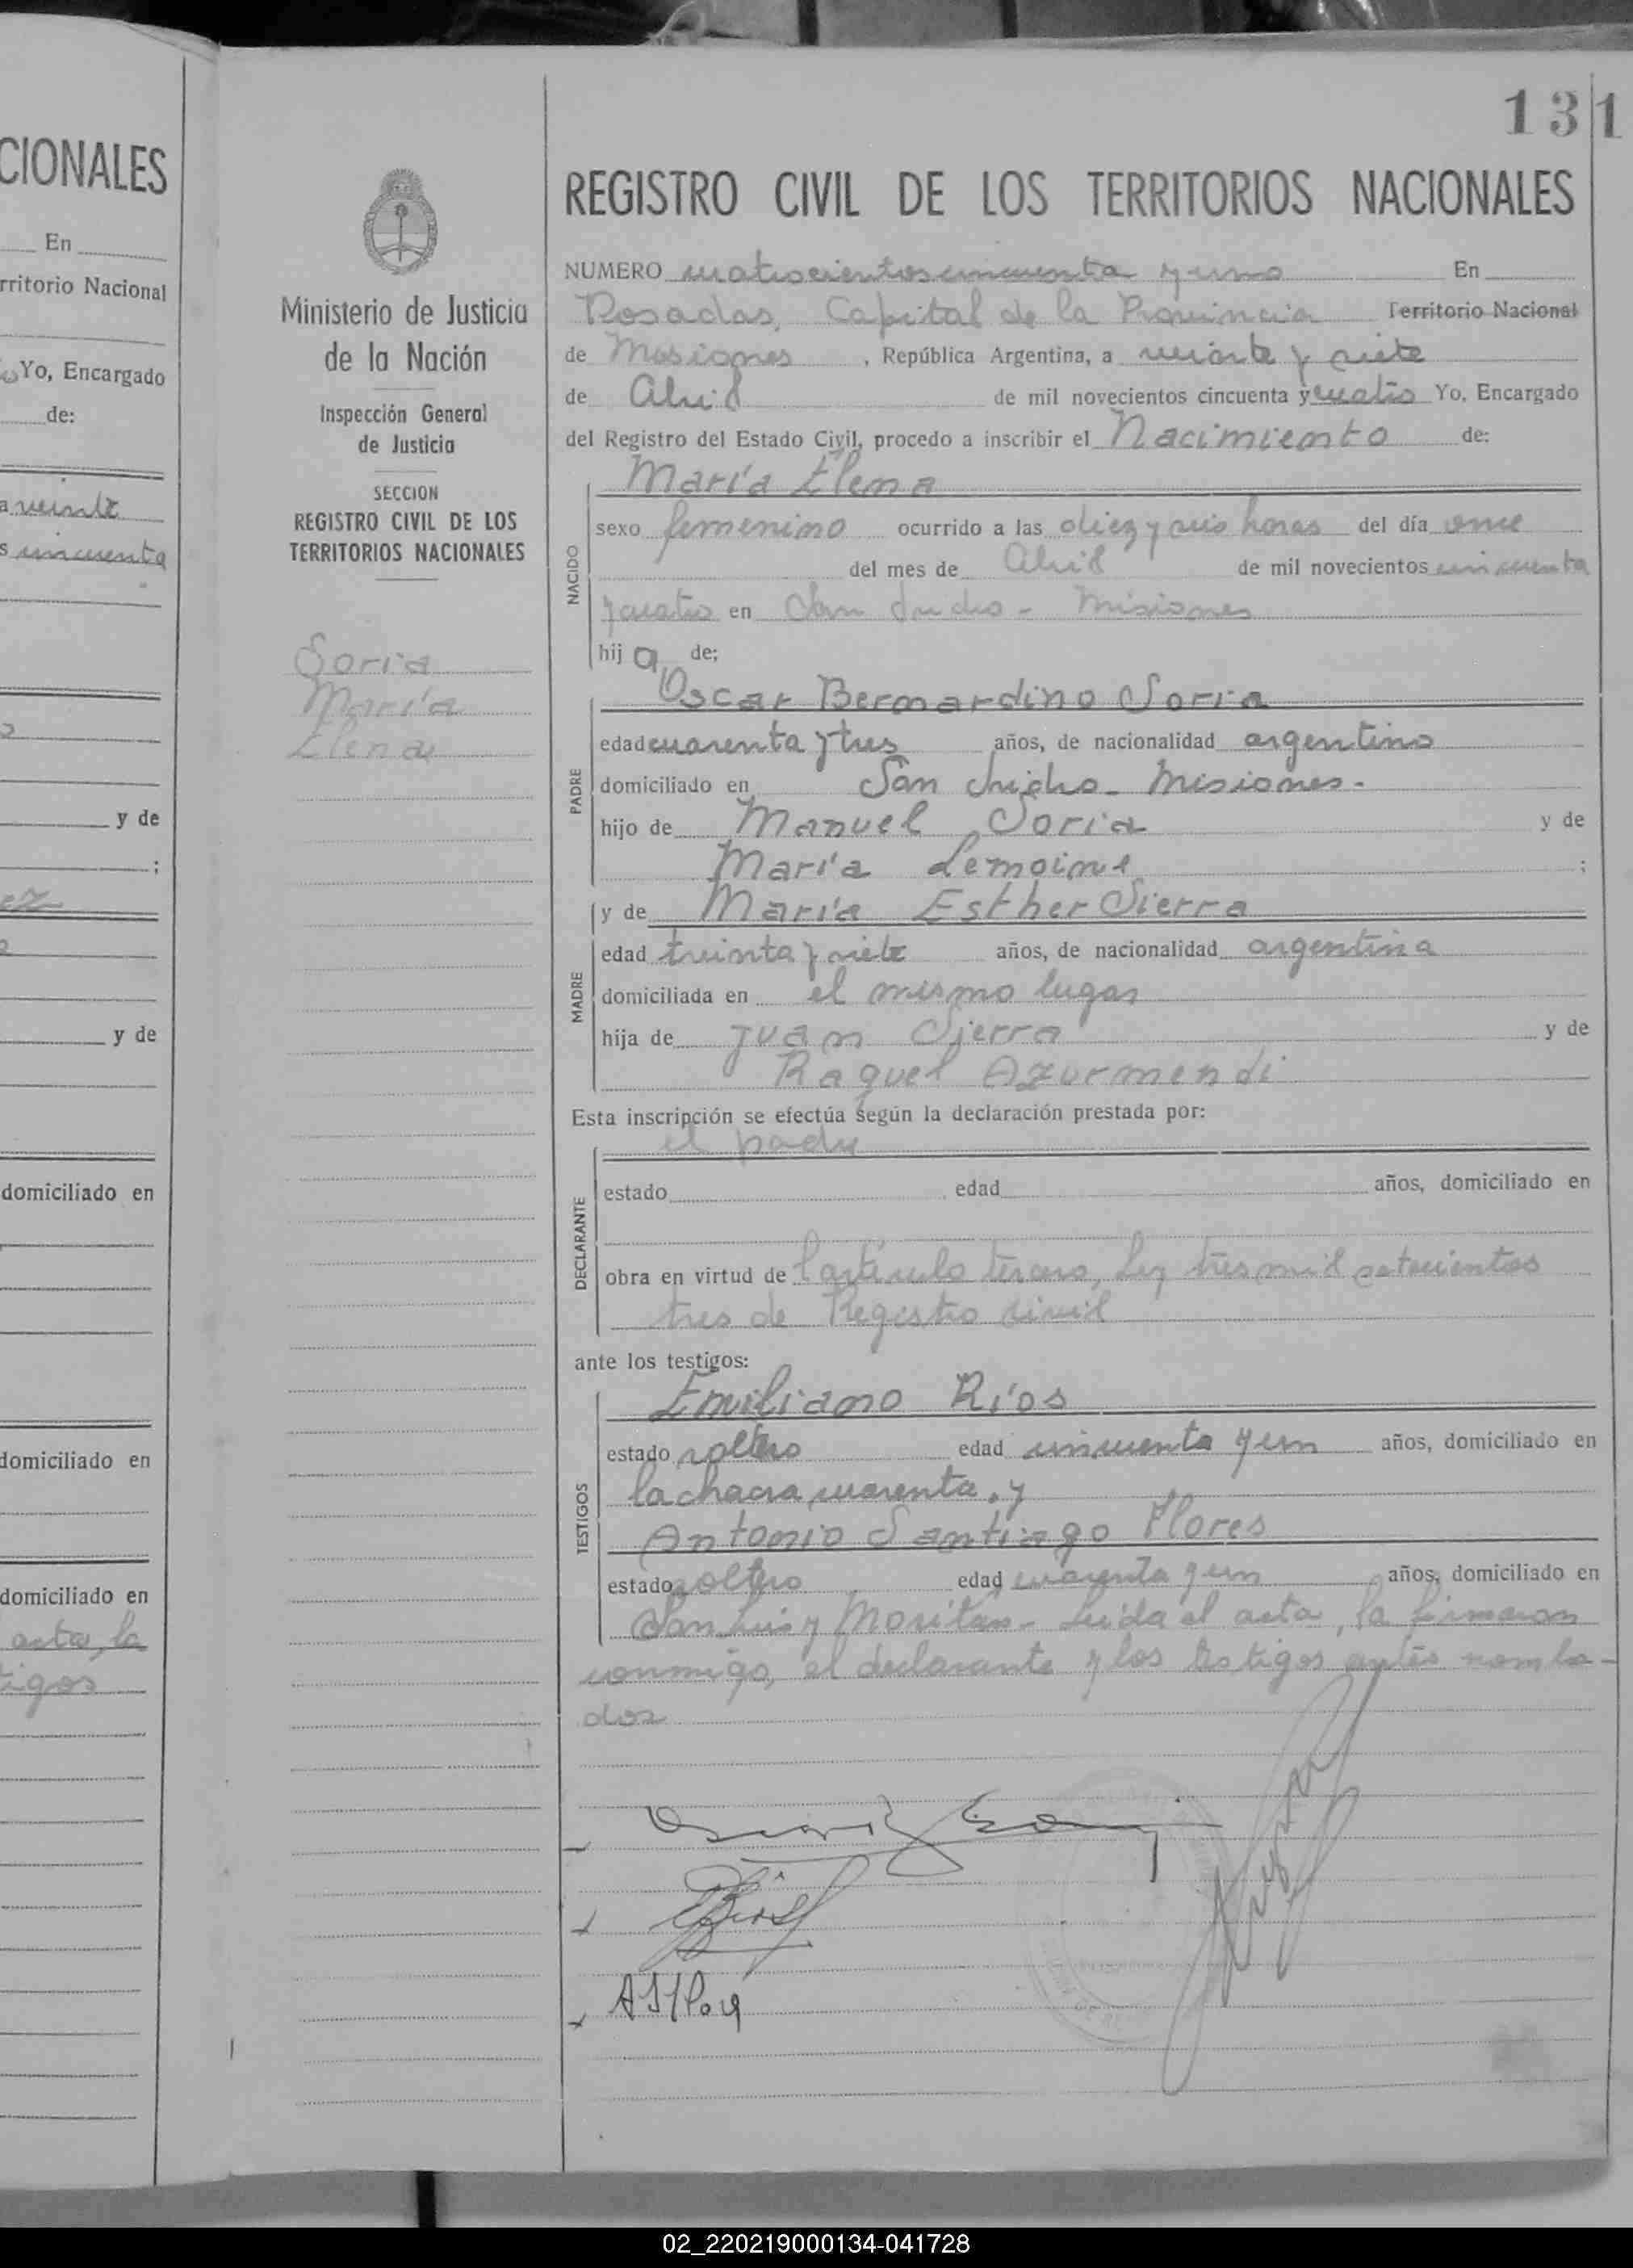 131
CIONALES
En
rritorio Nacional
Yo, Encargado
de:
a veinte
s cincuenta
y de
;
ez
y de
domiciliado en
domiciliado en
domiciliado en
acta, la
tigos
Ministerio de Justicia
de la Nación
Inspección General
de Justicia
SECCION
REGISTRO CIVIL DE LOS
TERRITORIOS NACIONALES
Soria
María
Elena
REGISTRO CIVIL DE LOS TERRITORIOS NACIONALES
NUMERO cuatrocientos cincuenta y uno En
Posadas, Capital de la Provincia Territorio Nacional
de Misiones, República Argentina, a veinte y siete
de Abril de mil novecientos cincuenta y cuatro Yo, Encargado
del Registro del Estado Civil, procedo a inscribir el Nacimiento de:
María Elena
NACIDO
sexo femenino ocurrido a las diez y seis horas del día once
del mes de Abril de mil novecientos cincuenta
y cuatro en San Isidro - Misiones
hija de;
Oscar Bernardino Soria
PADRE
edad cuarenta y tres años, de nacionalidad argentino
domiciliado en San Isidro - Misiones.
hijo de Manuel Soria y de
María Lemoine ;
y de María Esther Sierra
MADRE
edad treinta y siete años, de nacionalidad argentina
domiciliada en el mismo lugar
hija de Juan Sierra y de
Raquel Azurmendi
Esta inscripción se efectúa según la declaración prestada por:
el padre
DECLARANTE
estado edad años, domiciliado en
obra en virtud de l artículo tercero, Ley tres mil setecientos
tres de Registro Civil
ante los testigos:
Emiliano Ríos
TESTIGOS
estado soltero edad cincuenta y un años, domiciliado en
la chacra cuarenta. y
Antonio Santiago Flores
estado soltero edad cuarenta y un años, domiciliado en
San Luis y Moritán - Leída el acta, la firmaron
conmigo, el declarante y los testigos antes nombra-
dos
02_220219000134-041728